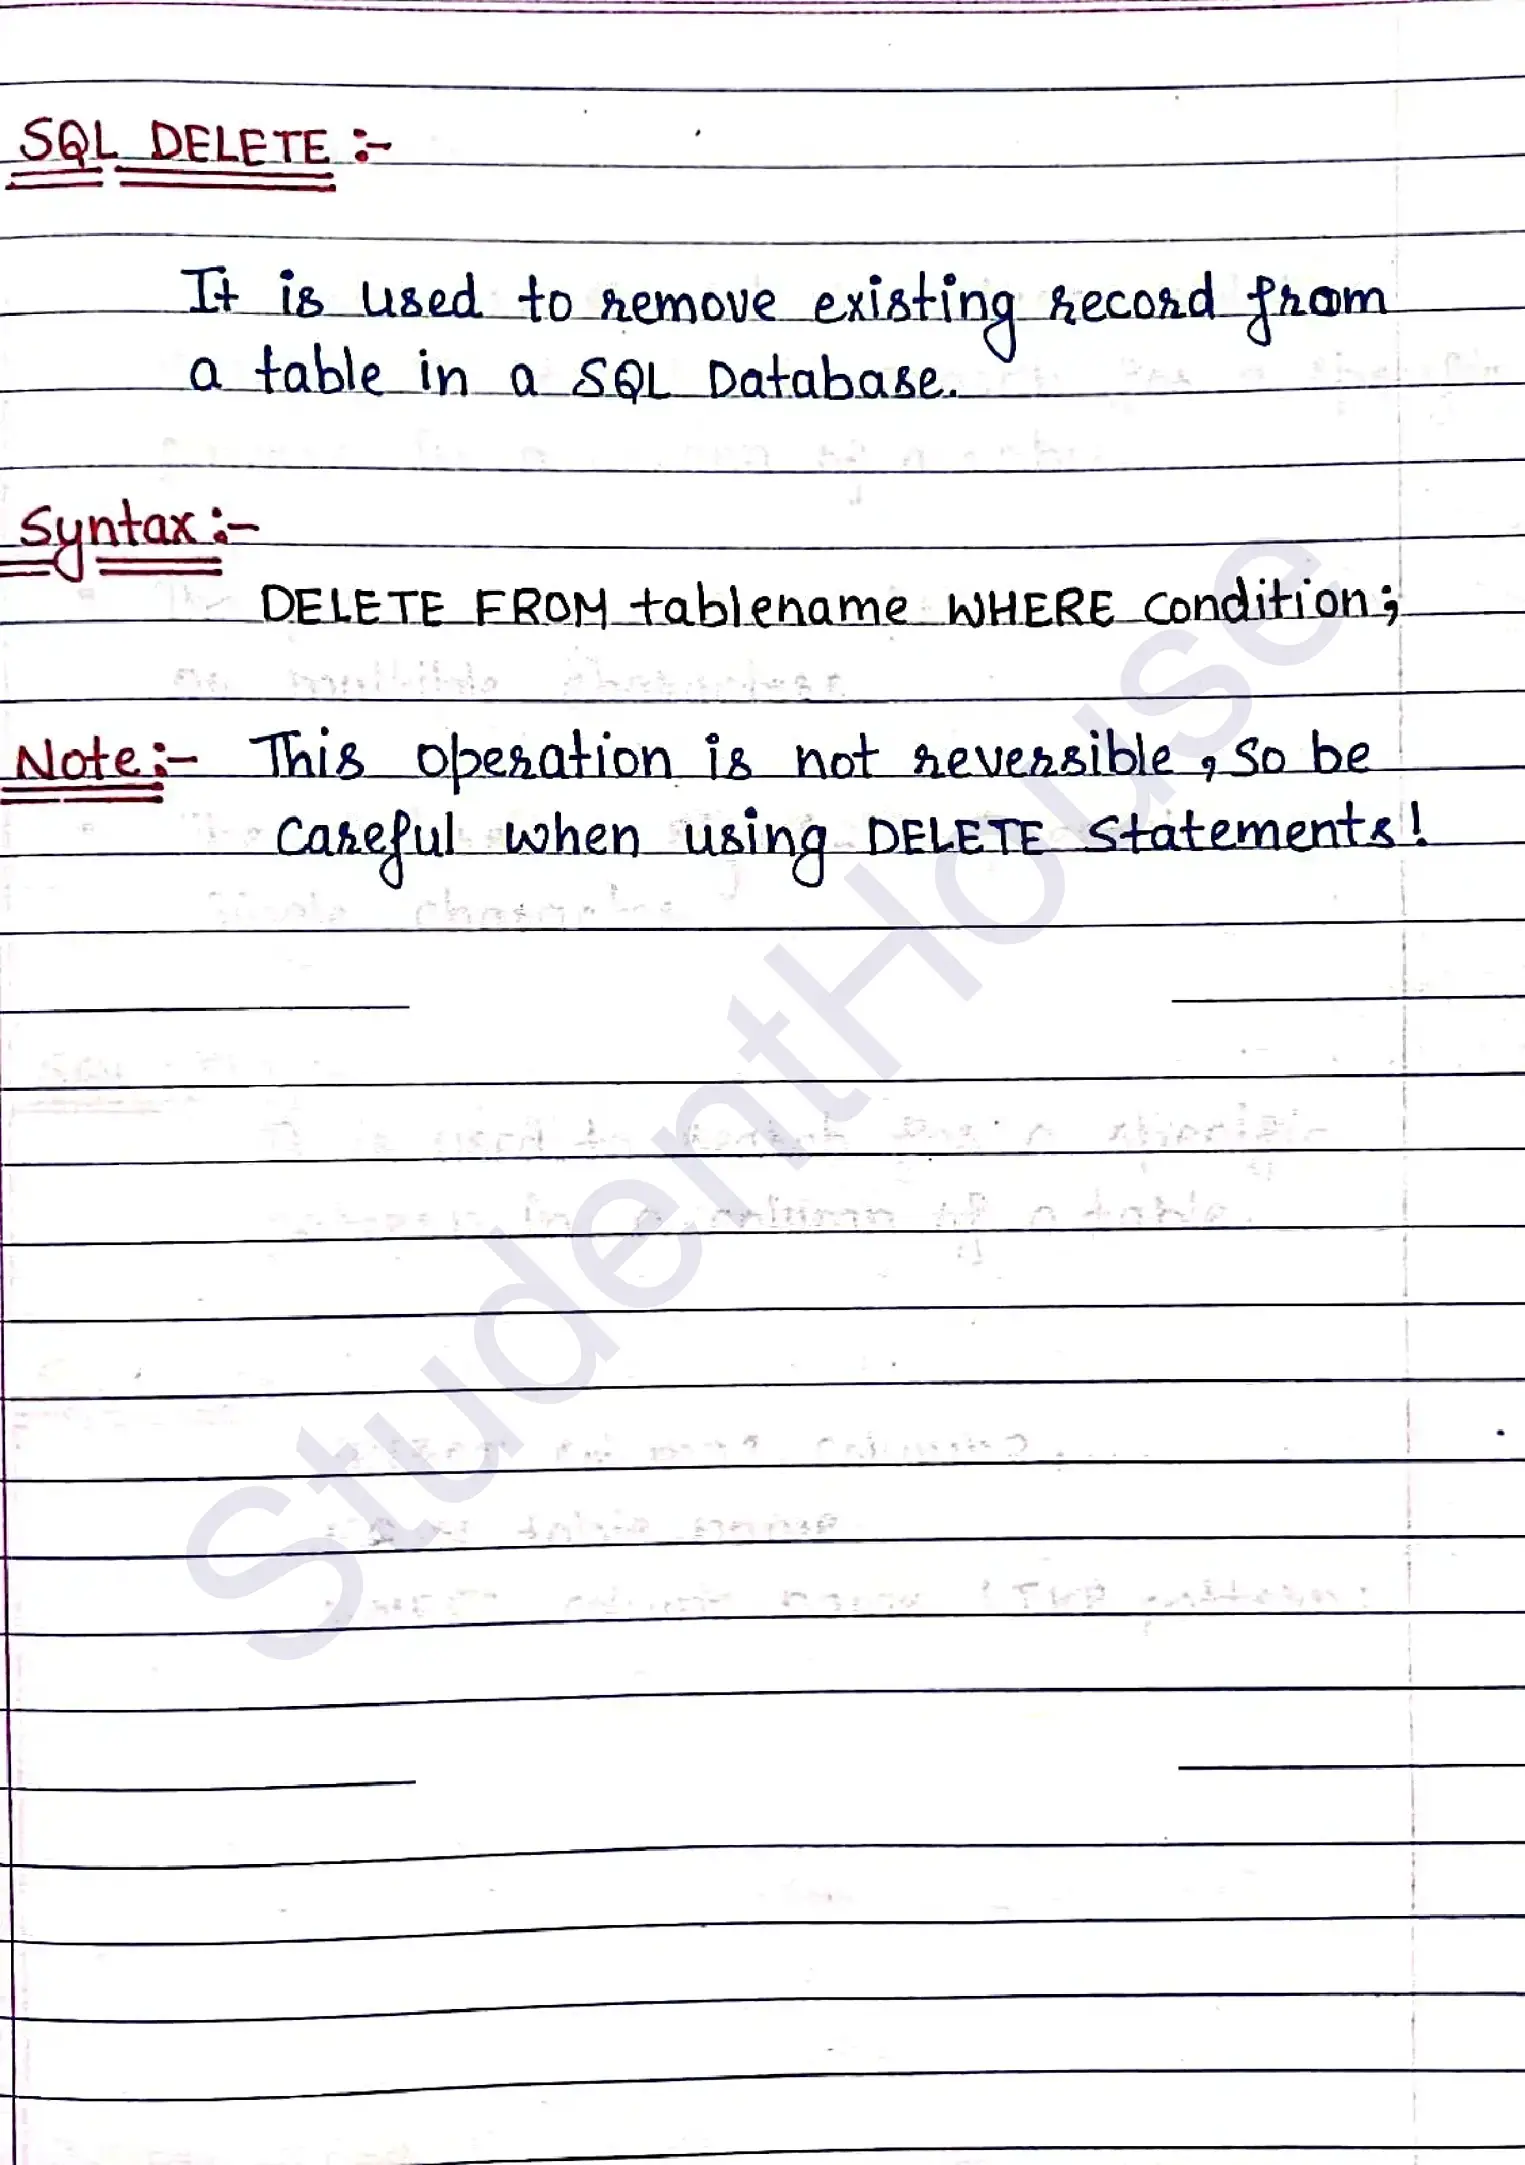 SQL DELETE :-
It is used to remove existing record from
a table in a SQL Database.
Syntax :-
DELETE FROM tablename WHERE condition;
Note :- This operation is not reversible, so be
careful when using DELETE statements!
StudentHouse